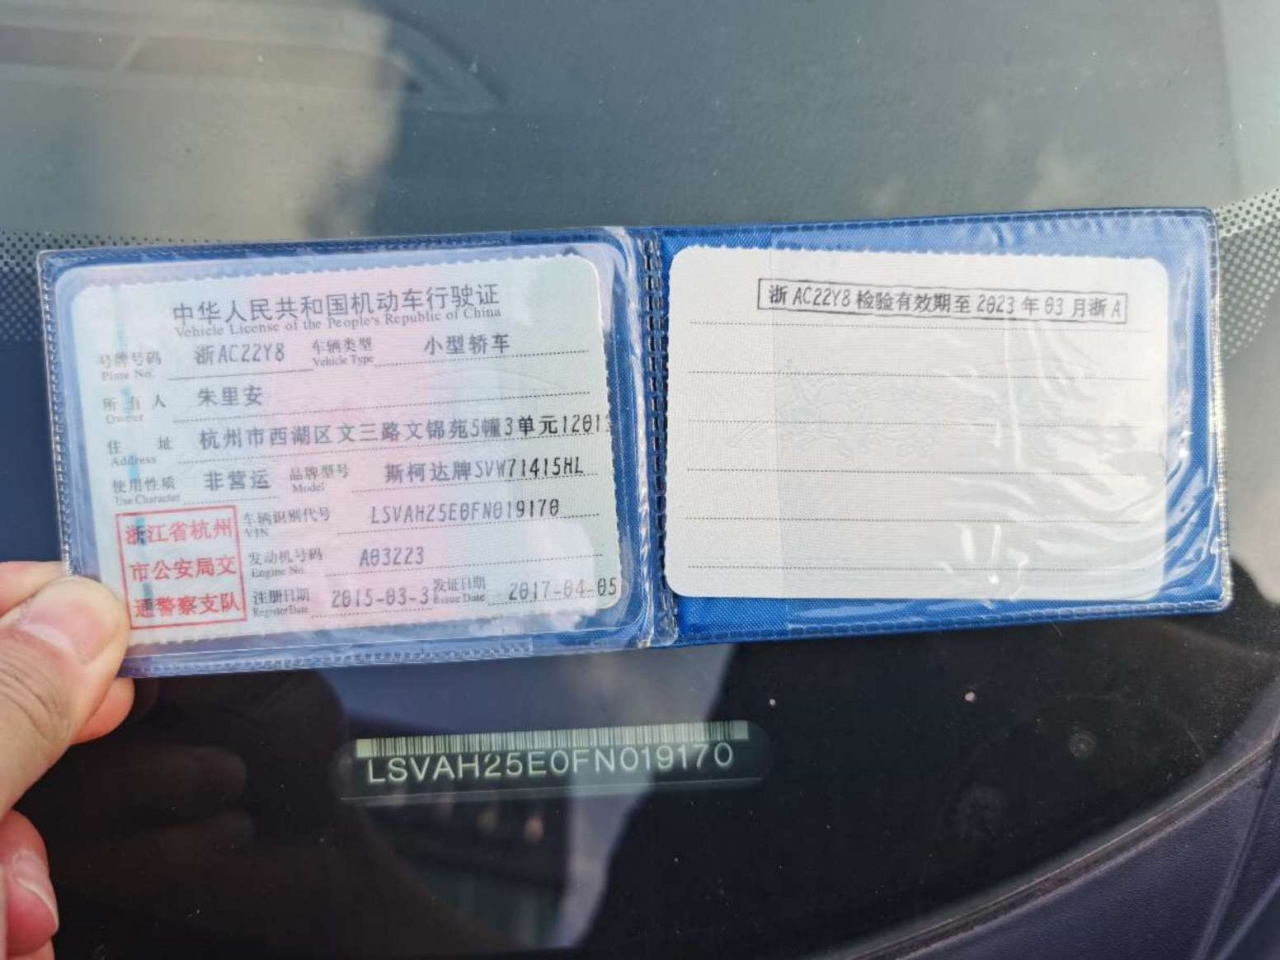 中华人民共和国机动车行驶证
Vehicle License of the People's Republic of China
号牌号码 浙AC22Y8 车辆类型 小型轿车
Plate No. Vehicle Type
所有人 朱里安
Owner
住址 杭州市西湖区文三路文锦苑5幢3单元1201
Address
使用性质 非营运 品牌型号 斯柯达牌SVW71415HL
Use Character Model
浙江省杭州
市公安局交
通警察支队
车辆识别代号 LSVAH25E0FN019170
VIN
发动机号码 A03223
Engine No.
注册日期 2015-03-3 发证日期 2017-04-05
Register Date Issue Date
浙AC22Y8检验有效期至2023年03月浙A
LSVAH25E0FN019170